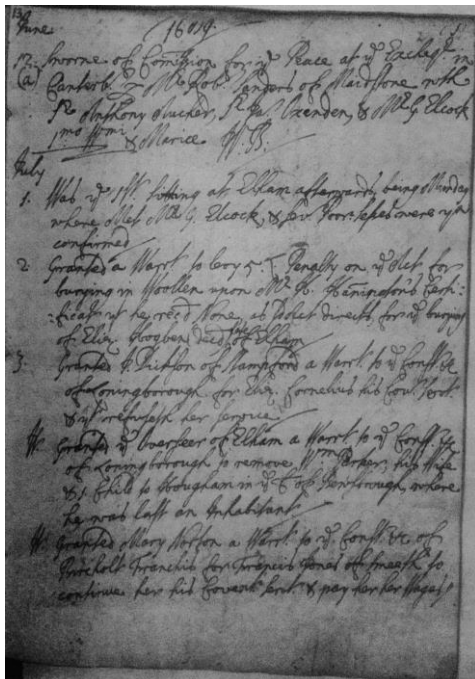 June 1689.
12. Sworne of Comission for ye Peace at ye
(a) Canterb: Mr Rob: Sanders of Maidstone with
Sr Anthony Aucher, Sr Ja: Oxenden, & Mr G. Elcock
1mo Wmi & Mariæ
July
1. Was ye Mo: sitting at Elham afterwards, being Munday
where Met Mr G. Elcock, & sev: Poor were yn
confirmed
2. Granted a Warrt to levy 5: £ Penalty on ye Act for
burying in Woollen upon Mr Hanington's Certi-
:ficat yt he recd None, as ye Act directs, for ye burying
of Eliz: Hogben decd late of Elham
3. Granted Dickson of Stampford a Warrt to ye Const: &c
of Loningborough for Eliz: Cornelius his Cov: Servt
& yt refuseth her service
Granted ye Overseer of Elham a Warrt to ye Const: &c
of Loningborough to remove Wm Parker, his Wife
& 1 Child to Hougham in ye of Bewsborough, where
he was last an Inhabitant
Granted Mary Norton a Warrt to ye Const: &c of
Bircholt Franchis for Francis Jones of Smeeth to
continue her his Covent Servt & pay her her Wages,